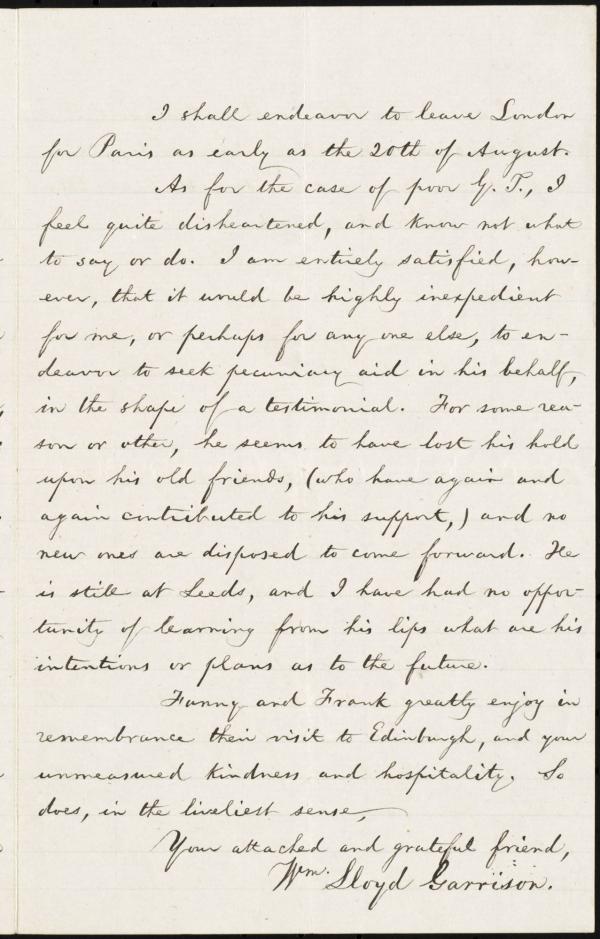 I shall endeavor to leave London
for Paris as early as the 20th of August.
As for the case of poor G. T., I
feel quite disheartened, and know not what
to say or do. I am entirely satisfied, how-
ever, that it would be highly inexpedient
for me, or perhaps for any one else, to en-
deavor to seek pecuniary aid in his behalf,
in the shape of a testimonial. For some rea-
son or other, he seems to have lost his hold
upon his old friends, (who have again and
again contributed to his support,) and no
new ones are disposed to come forward. He
is still at Leeds, and I have had no oppor-
tunity of learning from his lips what are his
intentions or plans as to the future.
Fanny and Frank greatly enjoy in
remembrance their visit to Edinburgh, and your
unmeasured kindness and hospitality. So
does, in the liveliest sense,
Your attached and grateful friend,
Wm. Lloyd Garrison.